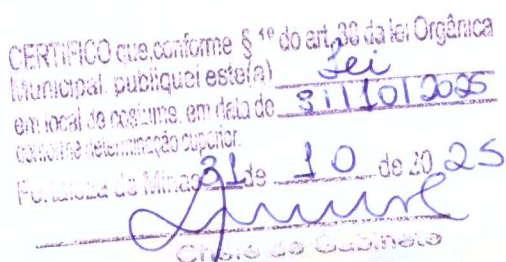 CERTIFICO que, conforme § 1º do art. 30 da lei Orgânica
Municipal, publiquei este(a) Lei
em local de costume, em data de 31/10/2025
conforme determinação superior.
Fortaleza de Minas 31 de 10 de 20 25
Chefe de Gabinete